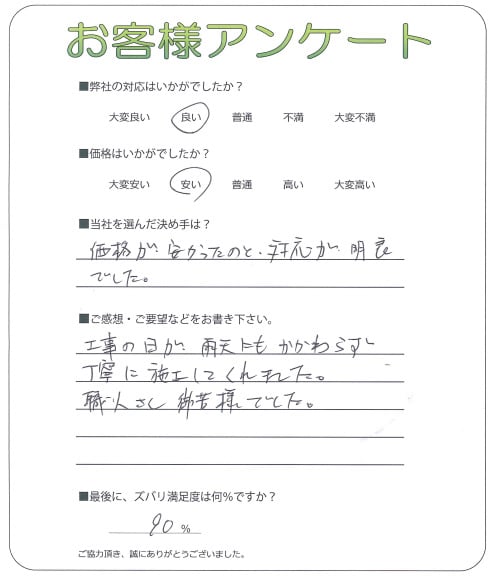 お客様アンケート
■弊社の対応はいかがでしたか？
大変良い 良い 普通 不満 大変不満
■価格はいかがでしたか？
大変安い 安い 普通 高い 大変高い
■当社を選んだ決め手は？
価格が安かったのと、対応が明良
でした。
■ご感想・ご要望などをお書き下さい。
工事の日が雨天にもかかわらず
丁寧に施工してくれました。
職人さん 御苦様でした。
■最後に、ズバリ満足度は何％ですか？
90 %
ご協力頂き、誠にありがとうございました。